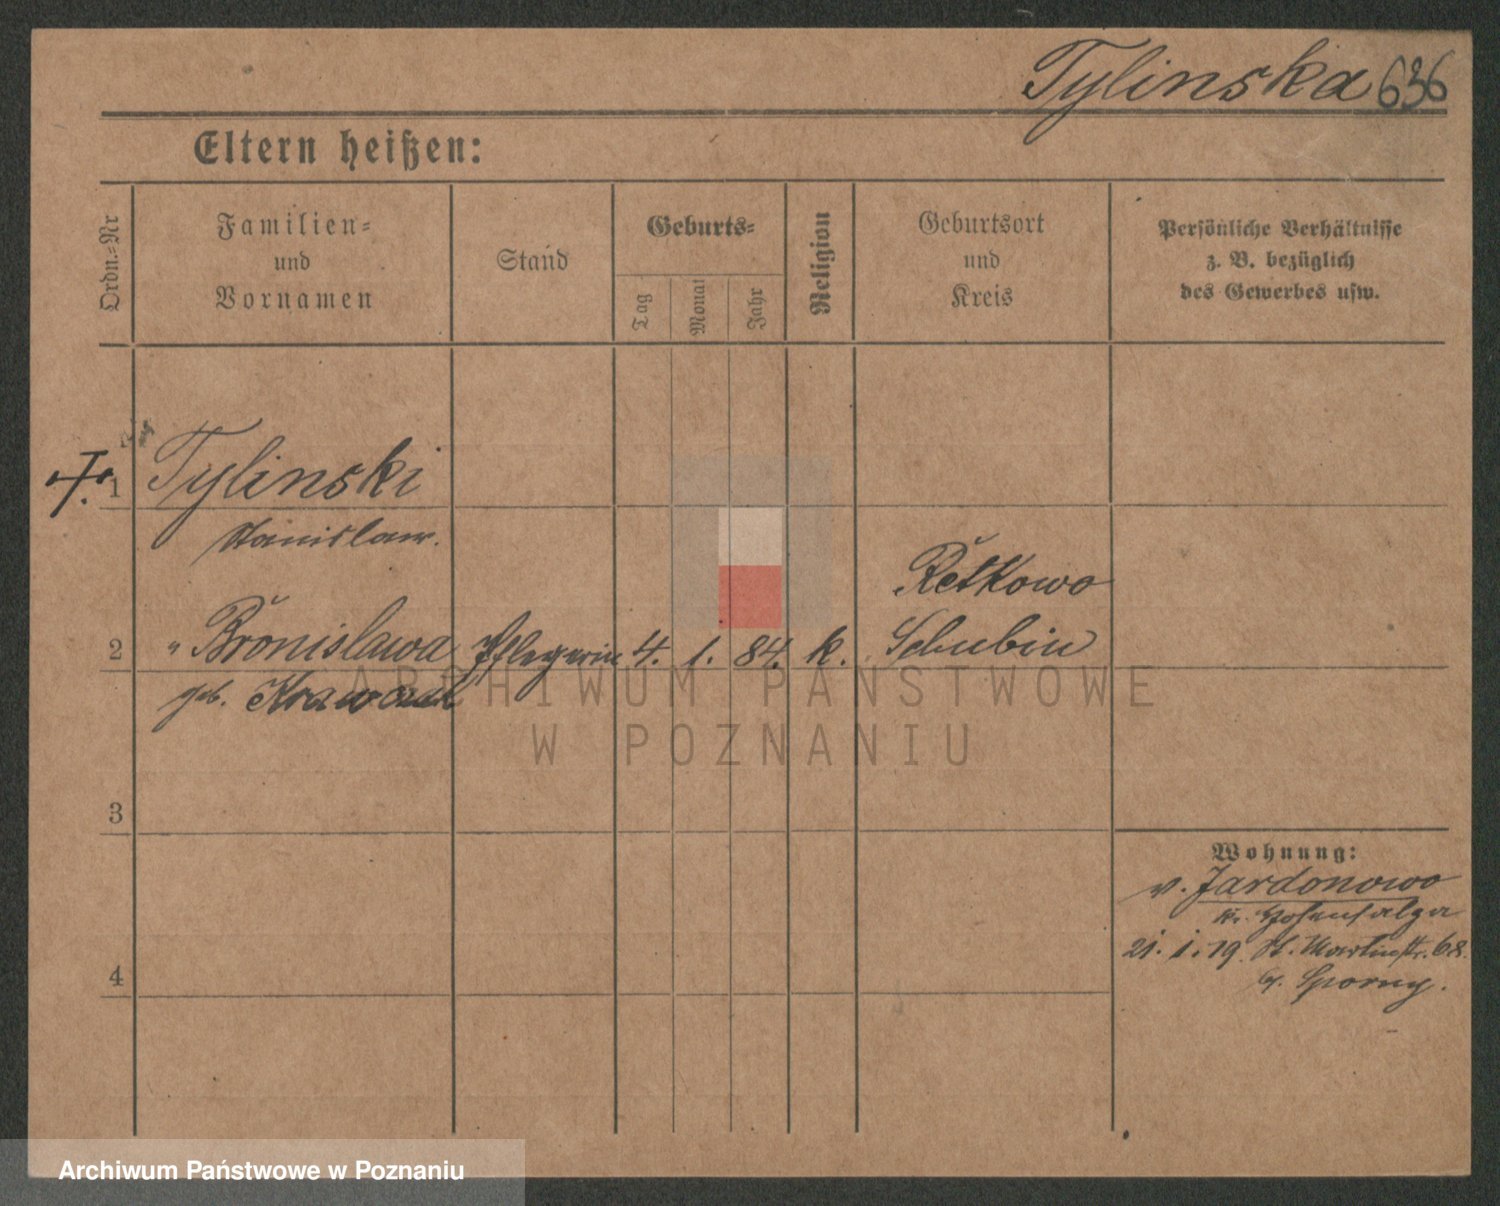 Tylinska 636
Eltern heißen:
Ordn.=Nr
Familien=
und
Vornamen
Stand
Geburts=
Tag
Monat
Jahr
Religion
Geburtsort
und
Kreis
Persönliche Verhältnisse
z. B. bezüglich
des Gewerbes usw.
1 Tylinski
Stanislaw.
2 " Bronislawa Pflegerin 4. 1. 84. k. Retkowo
Schubin
geb. Krawczak
3
4
Wohnung:
v. Jardonowo
Kr. Hohensalza
21. 1. 19. St. Martinstr. 68.
b. Sporny.
ARCHIWUM PAŃSTWOWE
W POZNANIU
Archiwum Państwowe w Poznaniu